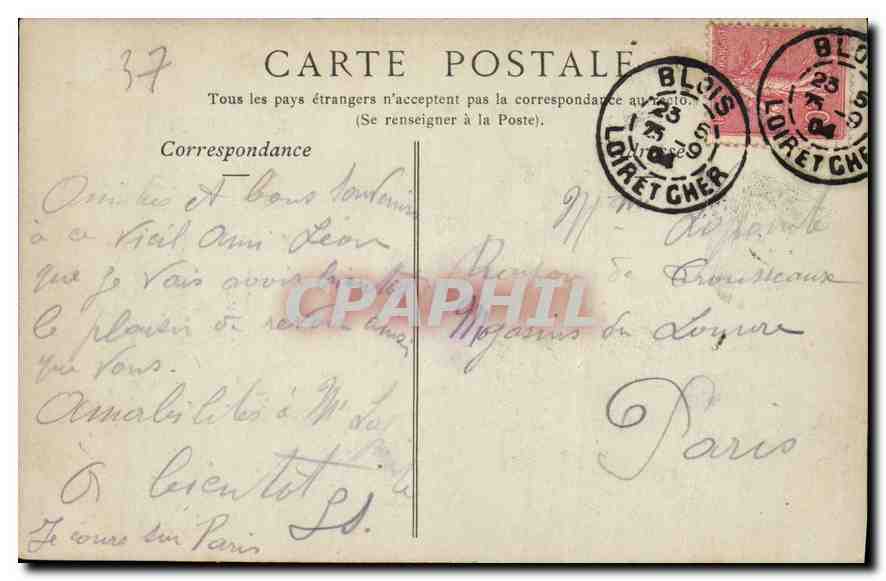 37
CARTE POSTALE
Tous les pays étrangers n'acceptent pas la correspondance au recto.
(Se renseigner à la Poste).
Correspondance
Adresse
BLOIS
23
5
9
04
LOIR ET CHER
BLOIS
23
5
9
04
LOIR ET CHER
Amitiés et bons souvenirs
à ce vieil ami Léon
que je vais avoir bientôt
le plaisir de revoir ainsi
que vous.
Amabilités à Mr
à bientôt
LS.
Je cours sur Paris
Rayon de Trousseaux
Magasins du Louvre
Paris
CPAPHIL